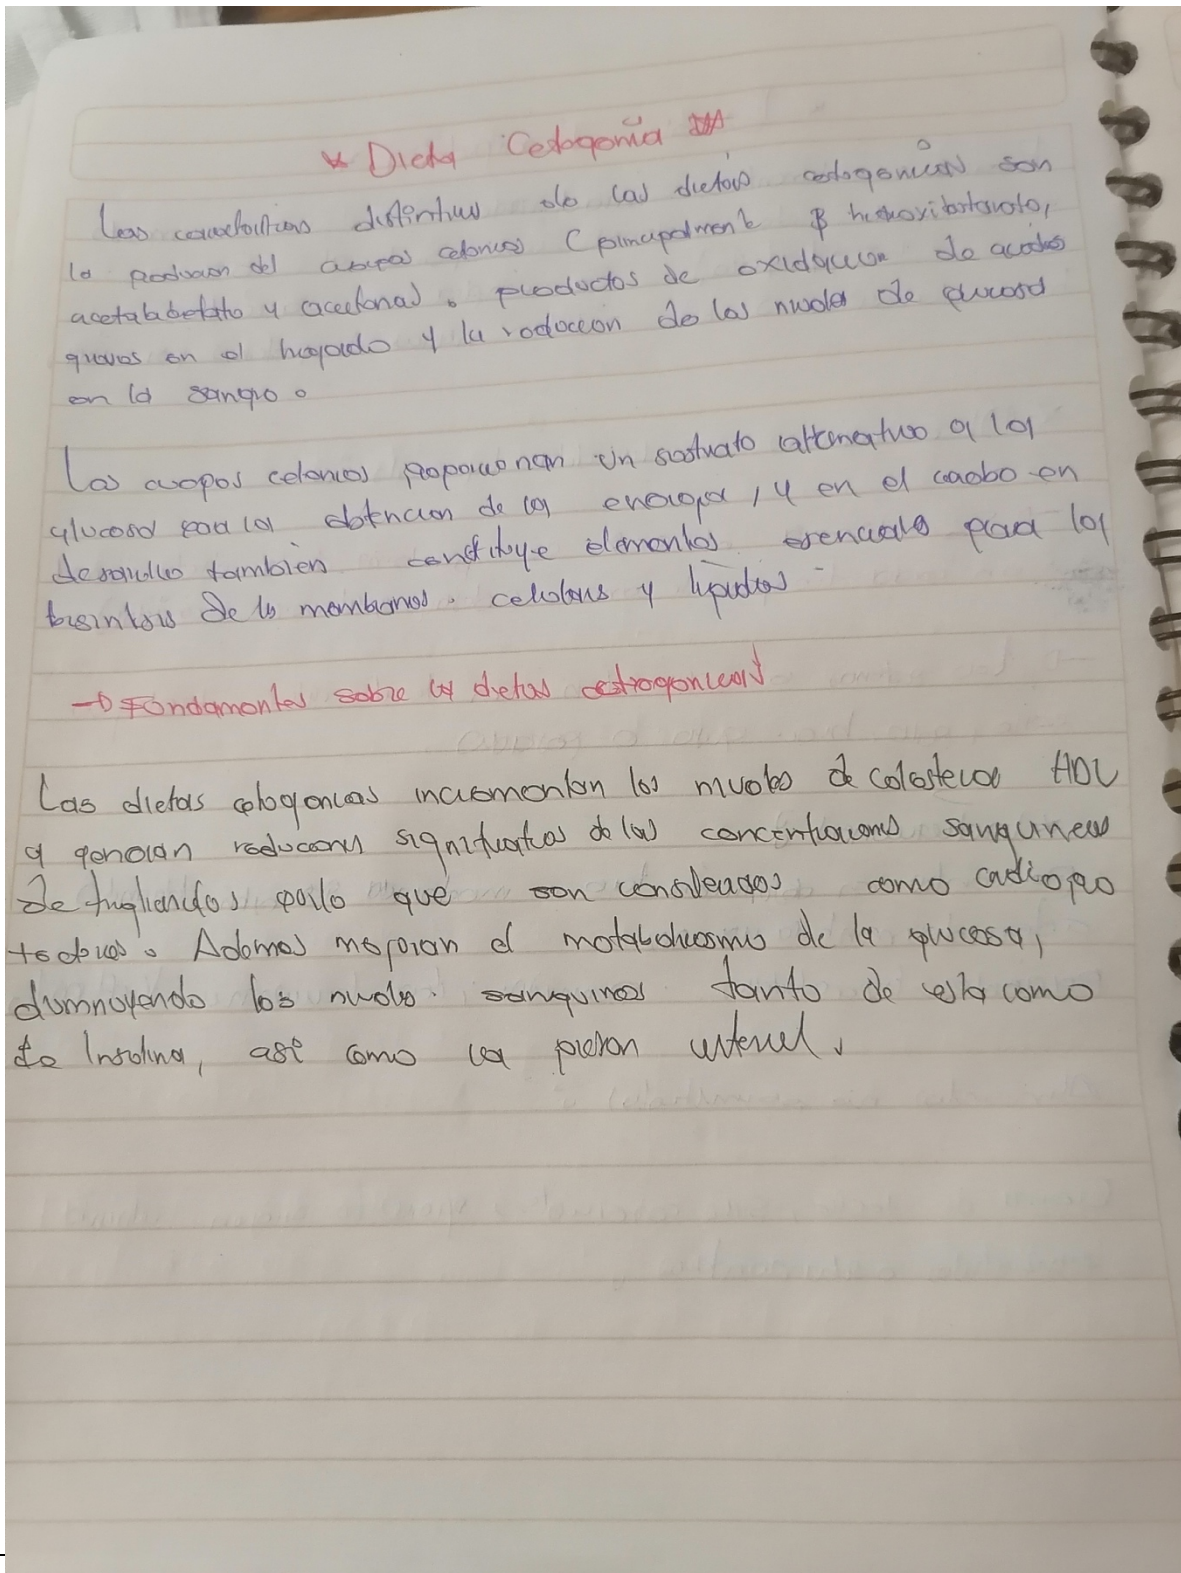 * Dieta Cetogenia
Las caracteristicas distintivas de las dietas cetogenicas son
la produccion del cuerpos cetonicos (principalmente β hidroxibutarato,
acetatabetato y acectonas). productos de oxidacion de acidos
grasos en el hagado y la reduccion de los niveles de glucosa
en la sangre.
Los cuerpos cetonicos proporcionan un sustrato alternativo a la
glucosa para la obtencion de la energia, y en el caobo en
desarrollo tambien constituye elementos esenciales para la
biosintesis de las membranas. celulares y lipidos
→ Fundamentos sobre las dietas cetrogenicas
Las dietas cetogenicas incrementan los niveles de colesterol HDL
y generan reducciones significativas de las concentraciones sanguineas
de trigliceridos por lo que son considerados como cardiopro
tectoras. Ademas mejoran el metabolicosmo de la glucosa,
disminuyendo los niveles sanguineos tanto de esta como
de Insolina, asi como la presion arterial.